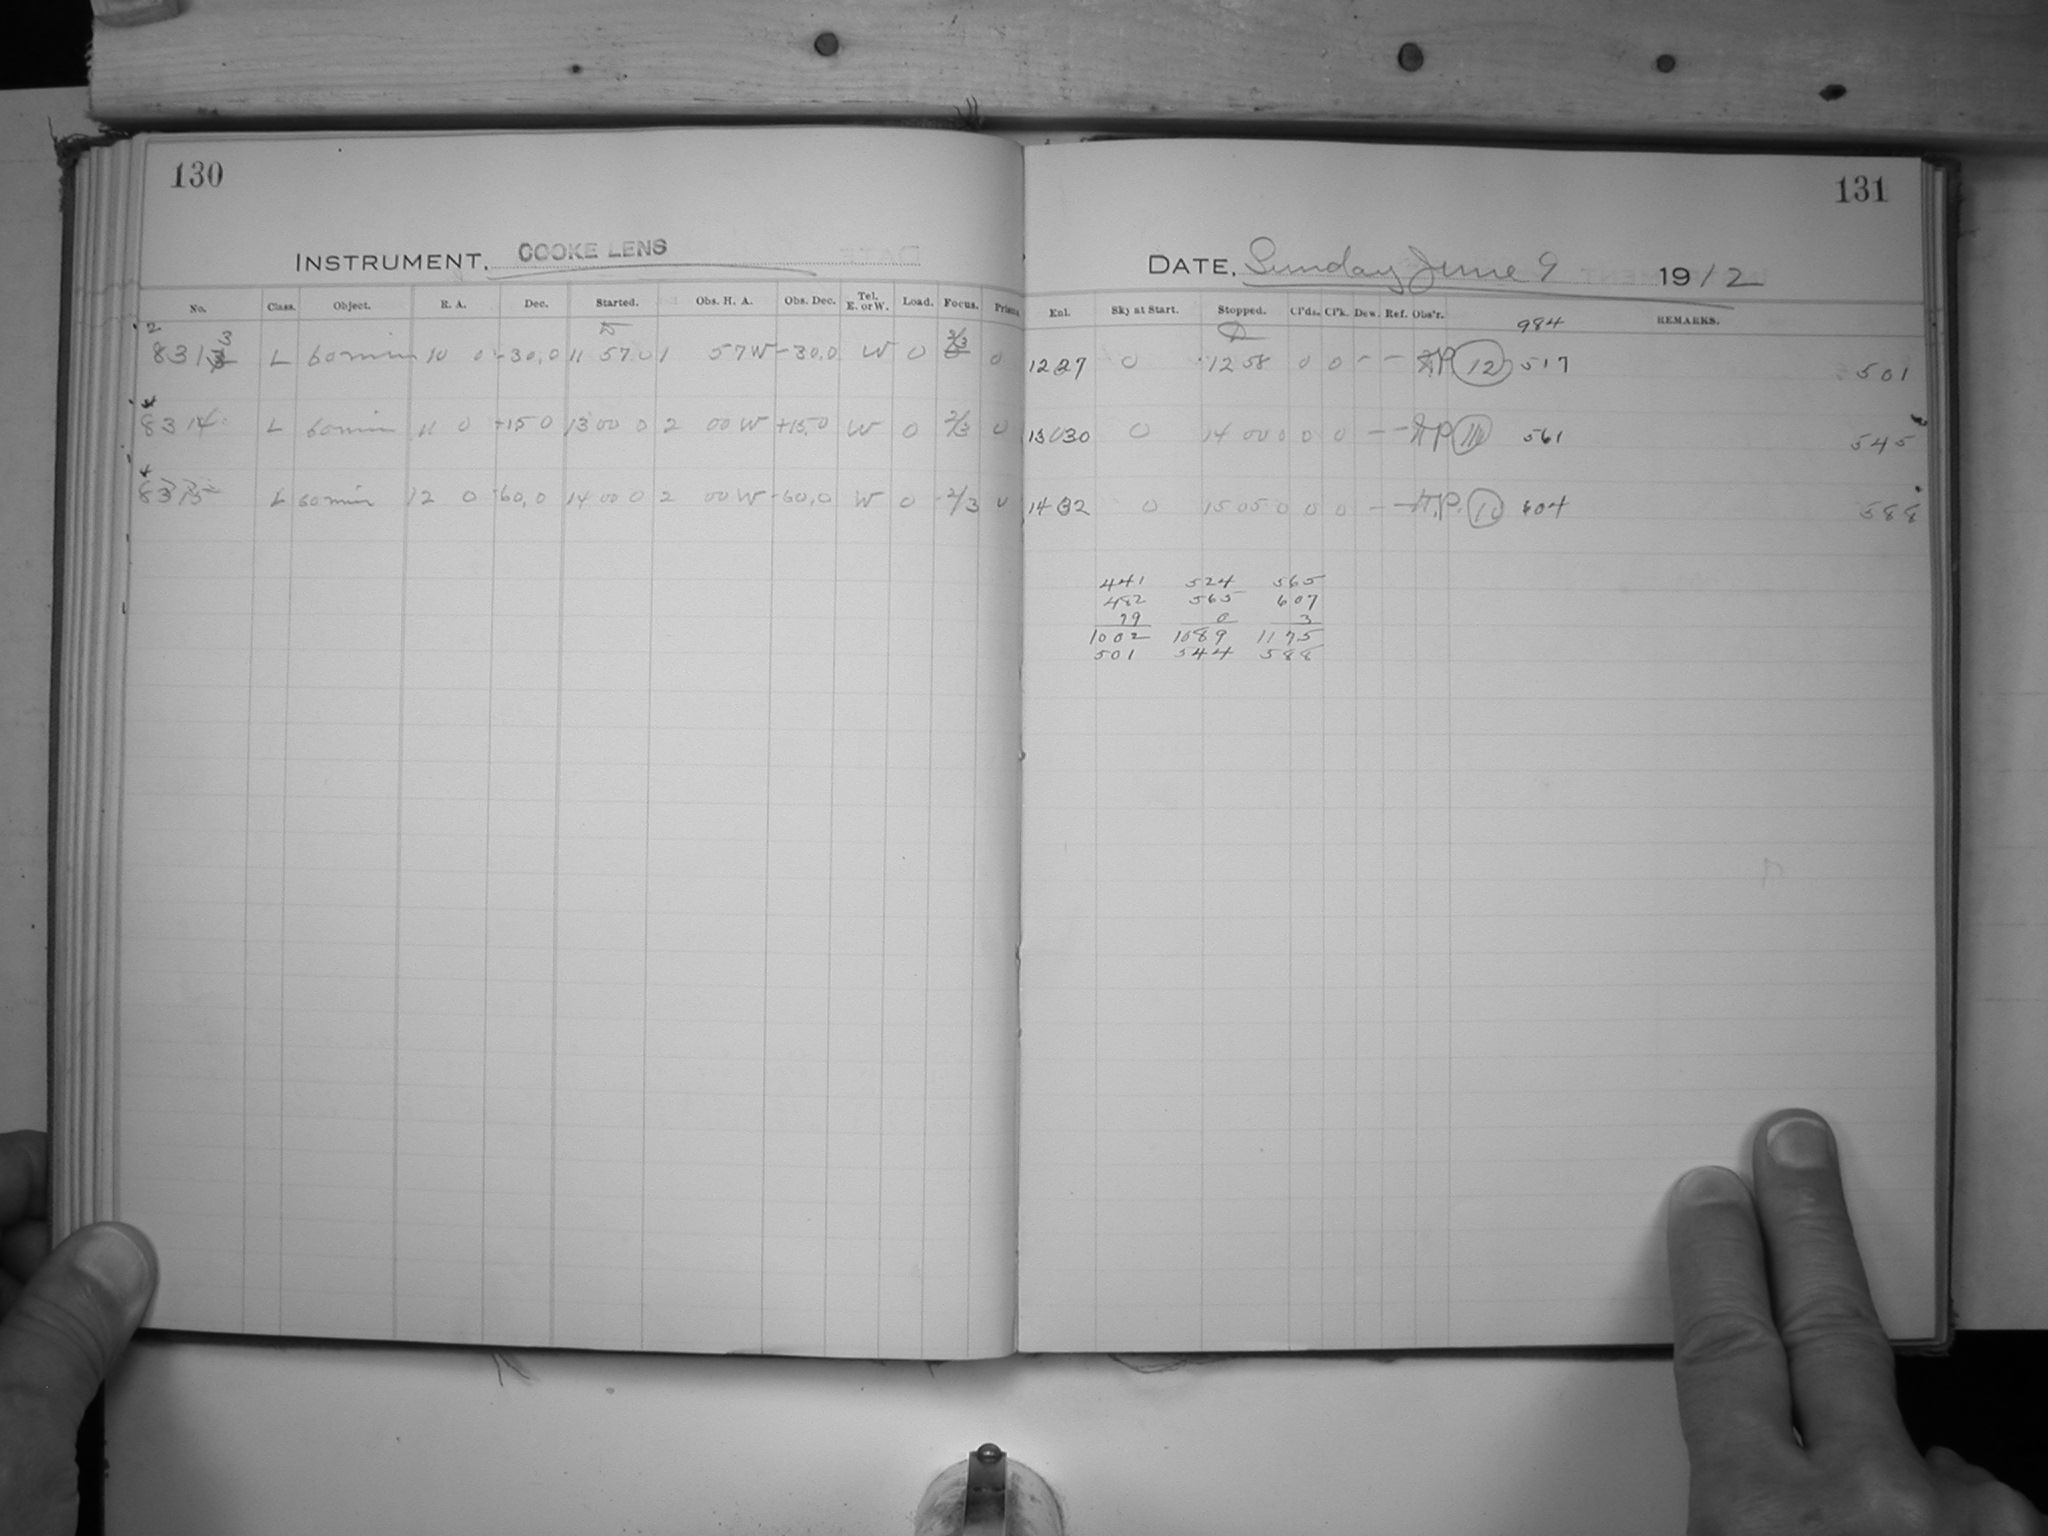 130
INSTRUMENT. COOKE LENS
No. Class. Object. R. A. Dec. Started. Obs. H. A. Obs. Dec. Tel. E. or W. Load. Focus. Prisms
8313 L 60 min 10 0 -30,0 11 57 0 1 57 W -30,0 W 0 2/3 0
8314 L 60 min 11 0 +15 0 13 00 0 2 00 W +15,0 W 0 2/3 0
8315 L 60 min 12 0 -60,0 14 00 0 2 00 W -60,0 W 0 2/3 0
131
DATE. Sunday June 9 1912
Exl. Sky at Start. Stopped. Cl'ds. Cl'k. Dew. Ref. Obs'r. REMARKS.
984
12 27 0 12 58 0 0 - - 12 517 501
13 30 0 14 00 0 0 0 - - 561 545
14 32 0 15 05 0 0 0 - - 604 588
441 524 565
482 565 607
79 0 3
1002 1089 1175
501 544 588